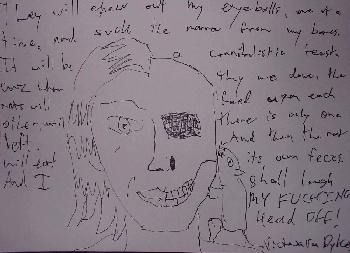 They will chew out my eyeballs, one at a
time, and suck the marrow from my bones.
It will be a cannibalistic feast
They me down the
rats will head upon each
other, until there is only one
left. And then the rat
will eat its own feces
And I shall laugh
MY FUCKING
Head OFF!